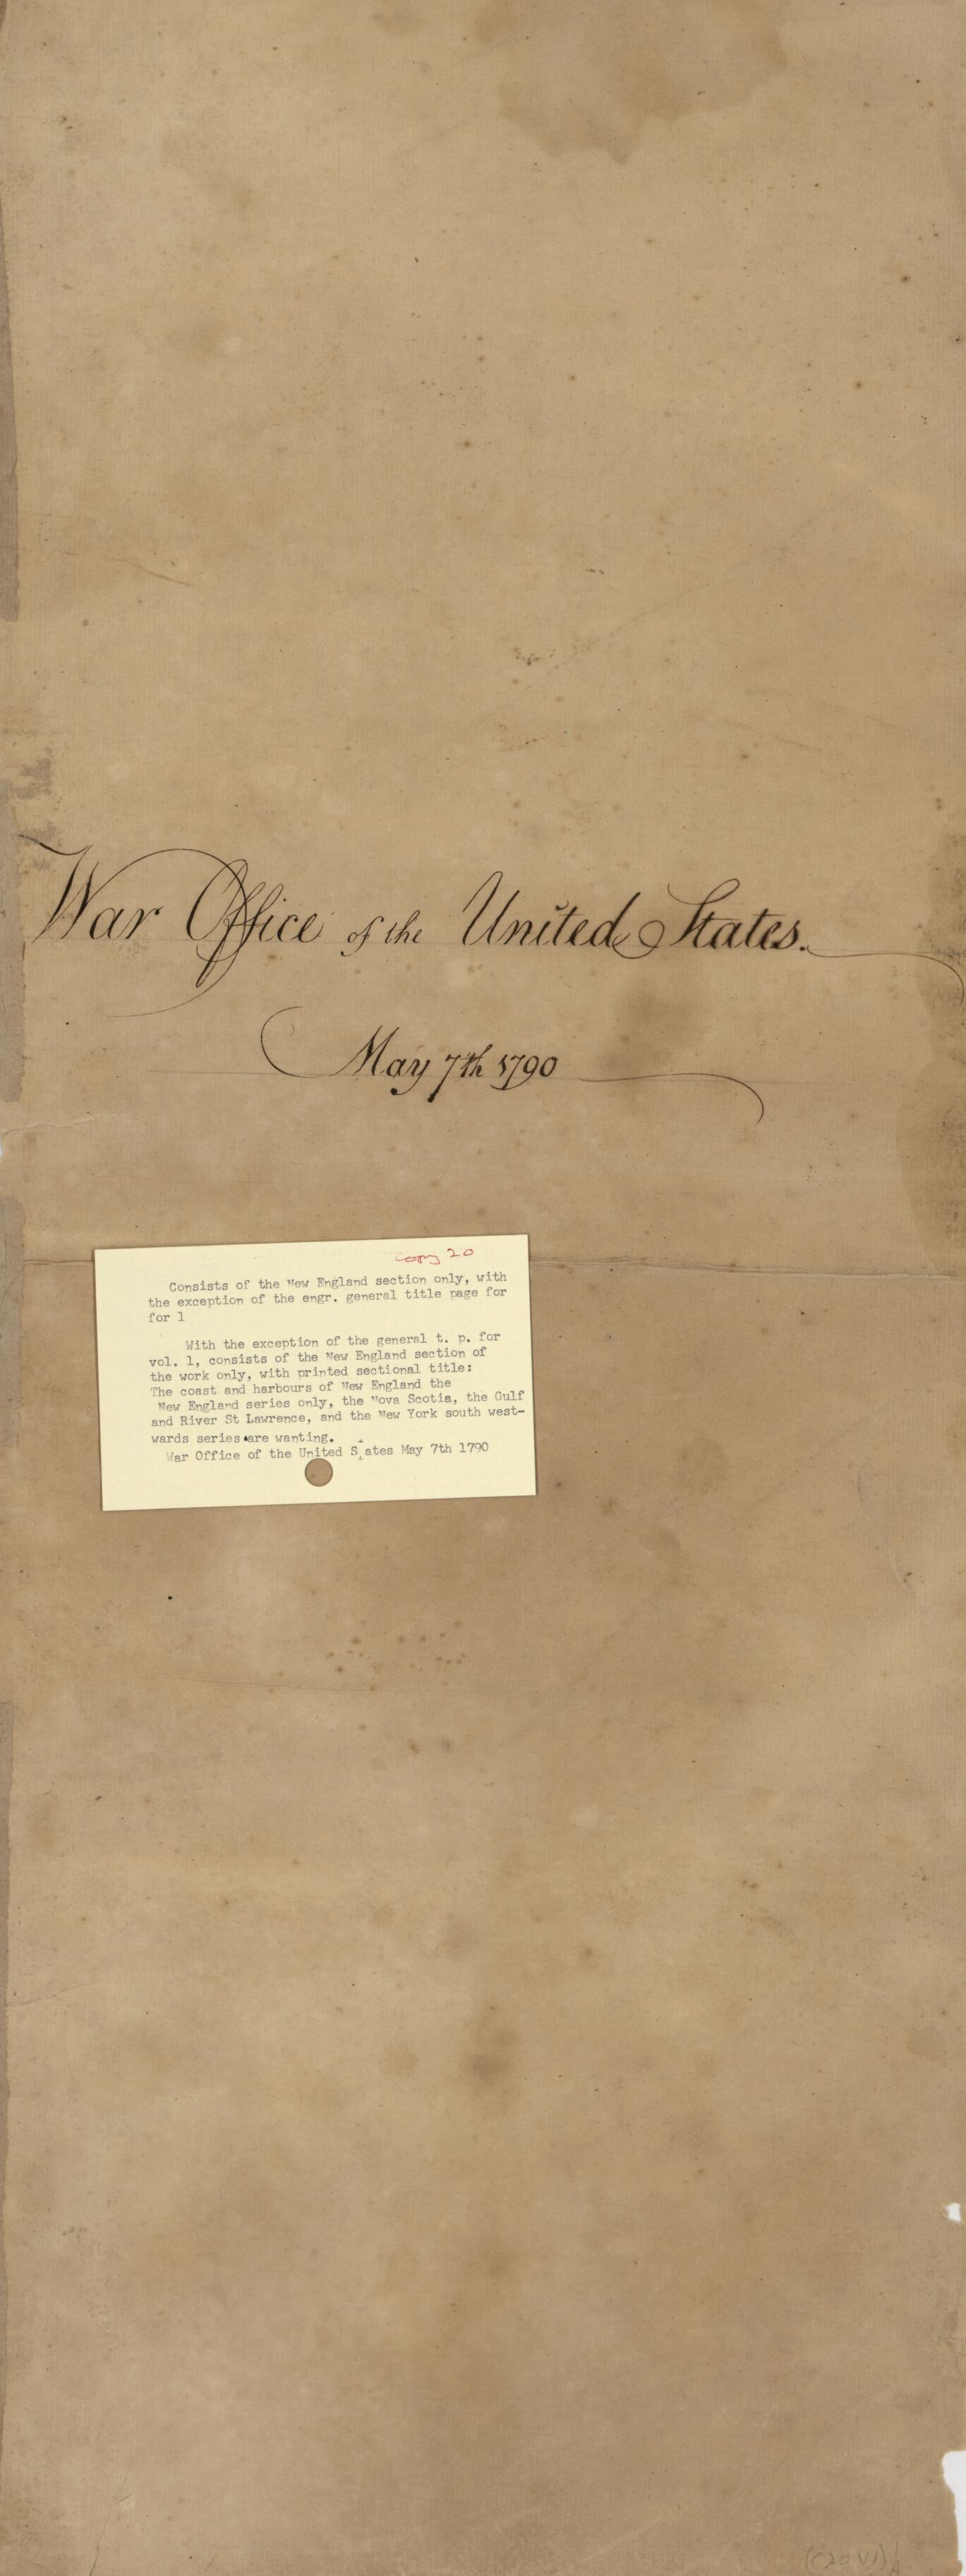 War Office of the United States.
May 7th 1790
Copy 20
Consists of the New England section only, with
the exception of the engr. general title page for
for 1
With the exception of the general t. p. for
vol. 1, consists of the New England section of
the work only, with printed sectional title:
The coast and harbours of New England the
New England series only, the Nova Scotia, the Gulf
and River St Lawrence, and the New York south west-
wards series are wanting.
War Office of the United S ates May 7th 1790
(C20 V1)